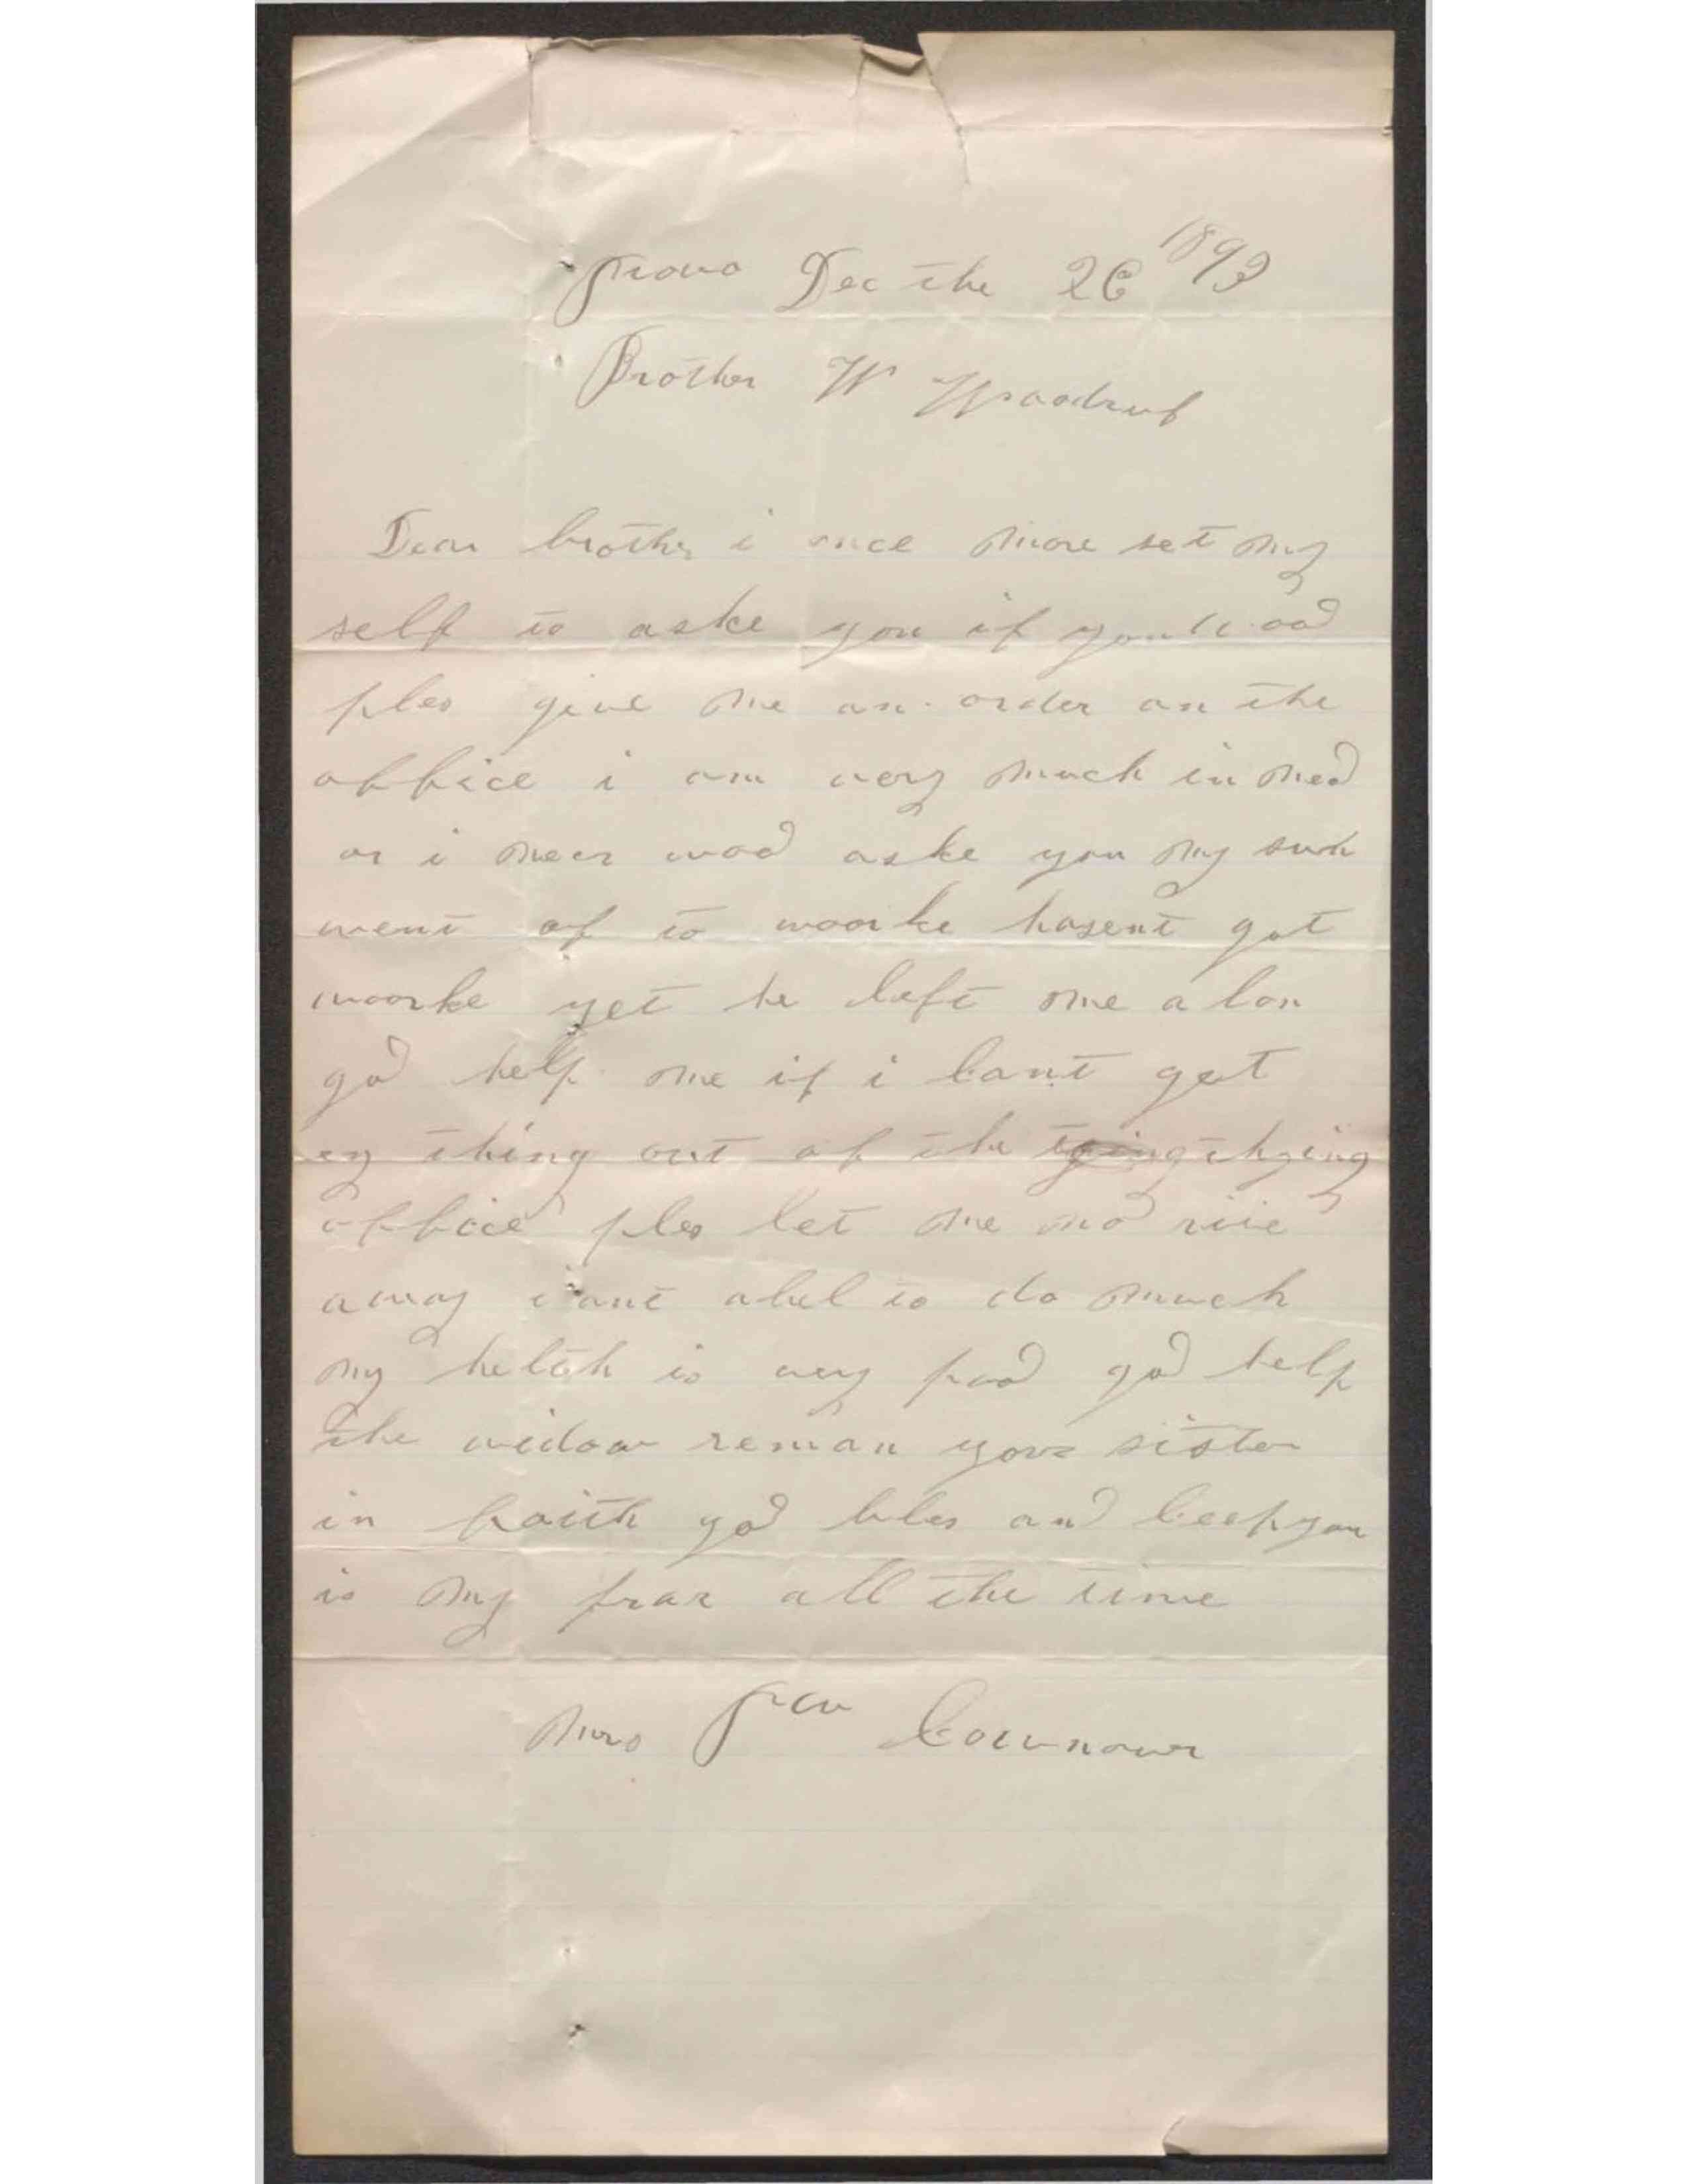 Provo Dec the 26 1893
Brother W Woodruf
Dear brother i once more set my
self to aske you if you wod
ples give me an order on the
office i am very much in need
or i never wod aske you my sun
went of to woorke hasent got
woorke yet he left me a lon
god help me if i cant get
eny thing out of the thying
office ples let me no rite
away i ant abel to do much
my helth is very pod god help
the widow reman your sister
in faith god bles and keep you
is my prar all the time
Mrs